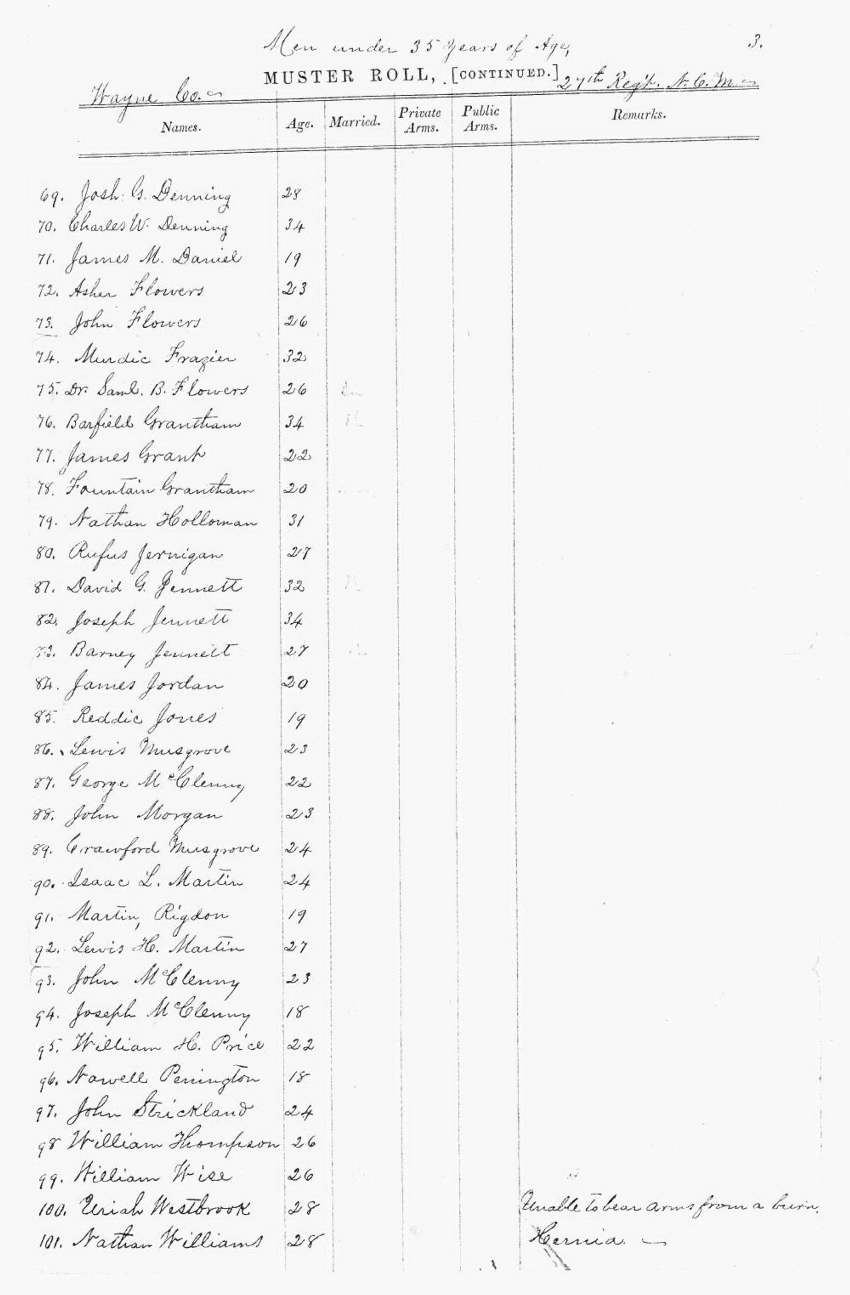 Men under 35 Years of Age, 3.
MUSTER ROLL, [CONTINUED.] 27th Regt. N. C. M
Wayne Co.
Names. Age. Married. Private Arms. Public Arms. Remarks.
69. Josh. G. Denning 28
70. Charles W. Denning 34
71. James M. Daniel 19
72. Asher Flowers 23
73. John Flowers 26
74. Murdic Frazier 32
75. Dr. Saml. B. Flowers 26
76. Barfield Grantham 34
77. James Grant 22
78. Fountain Grantham 20
79. Nathan Holloman 31
80. Rufus Jernigan 27
81. David G. Jennett 32
82. Joseph Jennett 34
73. Barney Jennett 27
84. James Jordan 20
85. Reddic Jones 19
86. Lewis Musgrove 23
87. George McClenny 22
88. John Morgan 23
89. Crawford Musgrove 24
90. Isaac L. Martin 24
91. Martin, Rigdon 19
92. Lewis H. Martin 27
93. John McClenny 23
94. Joseph McClenny 18
95. William H. Price 22
96. Nowell Penington 18
97. John Strickland 24
98 William Thompson 26
99. William Wise 26
100. Uriah Westbrook 28 Unable to bear arms from a burn.
101. Nathan Williams 28 Hernia.